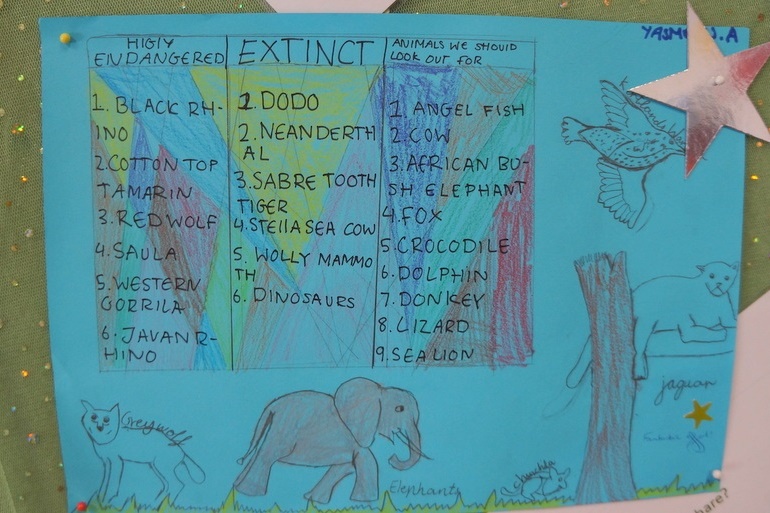 YASMIN.A
HIGIY
ENDANGERED
1. BLACK RH-
INO
2.COTTON TOP
TAMARIN
3. RED WOLF
4. SAULA
5. WESTERN
GORRILA
6. JAVAN R-
HINO
EXTINCT
1. DODO
2. NEANDERTH
AL
3. SABRE TOOTH
TIGER
4. STEllA SEA COW
5. WOLLY MAMMO
TH
6. DINOSAURS
ANIMALS WE SHOULD
LOOK OUT FOR
1. ANGEL FISH
2. COW
3. AFRICAN BU-
SH ELEPHANT
4. FOX
5. CROCODILE
6. DOLPHIN
7. DONKEY
8. LIZARD
9. SEA LION
jaguar
Grey wolf
Elephant
hare?